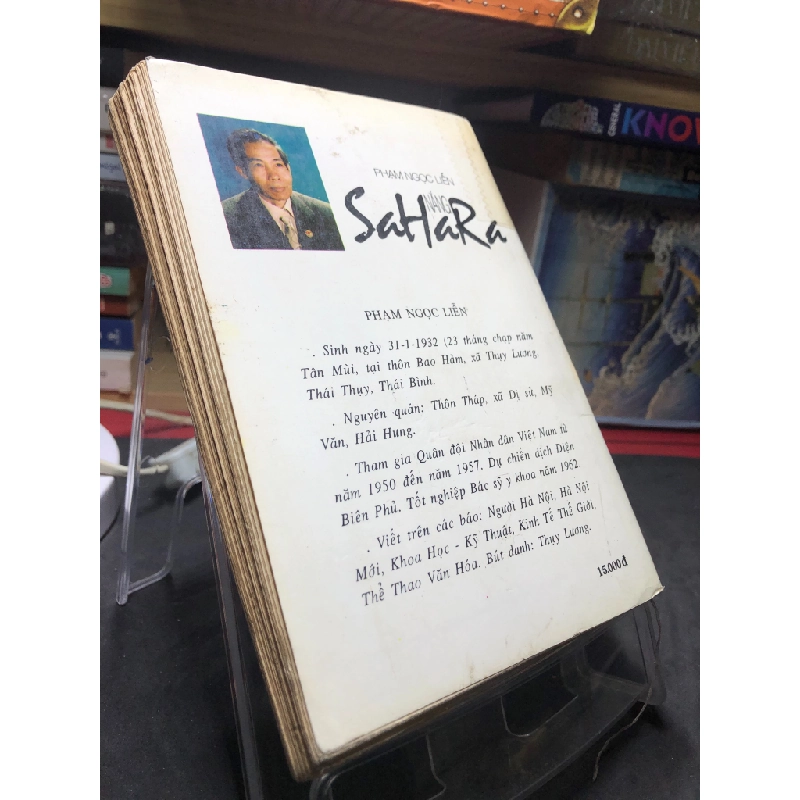 PHẠM NGỌC LIỄN
NẮNG
SaHaRa
PHẠM NGỌC LIỄN
. Sinh ngày 31-1-1932 (23 tháng chạp năm
Tân Mùi, tại thôn Bao Hàm, xã Thụy Lương
Thái Thụy, Thái Bình.
. Nguyên quán: Thôn Tháp, xã Dị sử, Mỹ
Văn, Hải Hưng.
. Tham gia Quân đội Nhân dân Việt Nam từ
năm 1950 đến năm 1957. Dự chiến dịch Điện
Biên Phủ. Tốt nghiệp Bác sỹ y khoa năm 1962.
. Viết trên các báo: Người Hà Nội, Hà Nội
Mới, Khoa Học - Kỹ Thuật, Kinh Tế Thế Giới,
Thể Thao Văn Hóa. Bút danh: Thụy Lương.
15.000đ
GENERAL
KNOW